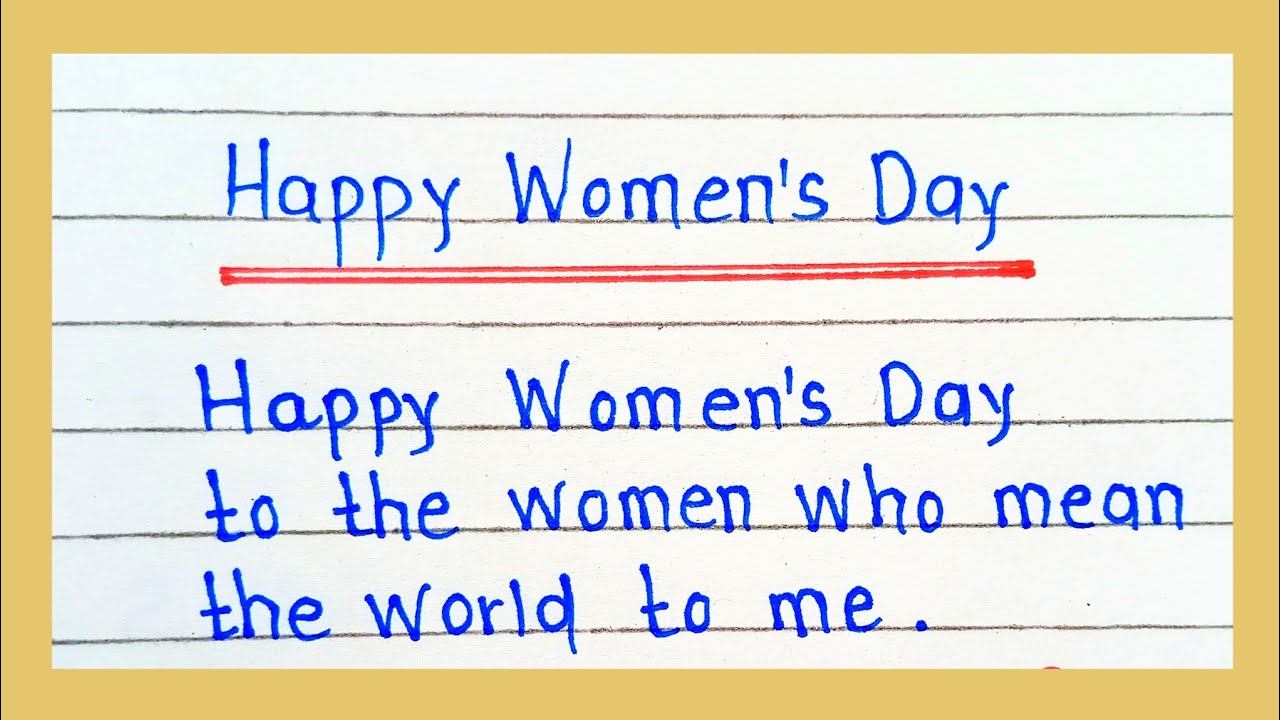 Happy Women's Day
Happy Women's Day
to the women who mean
the world to me.